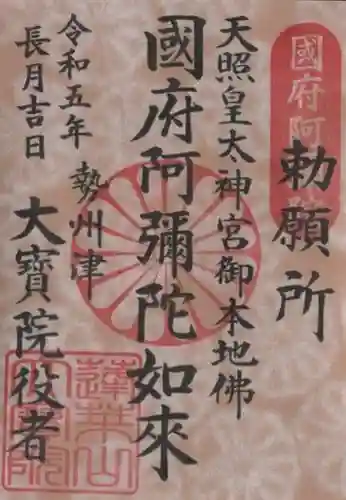 國府阿
勅願所
天照皇太神宮御本地佛
國府阿彌陀如來
令和五年
長月吉日
勢州津
大寶院役者
蓮華山